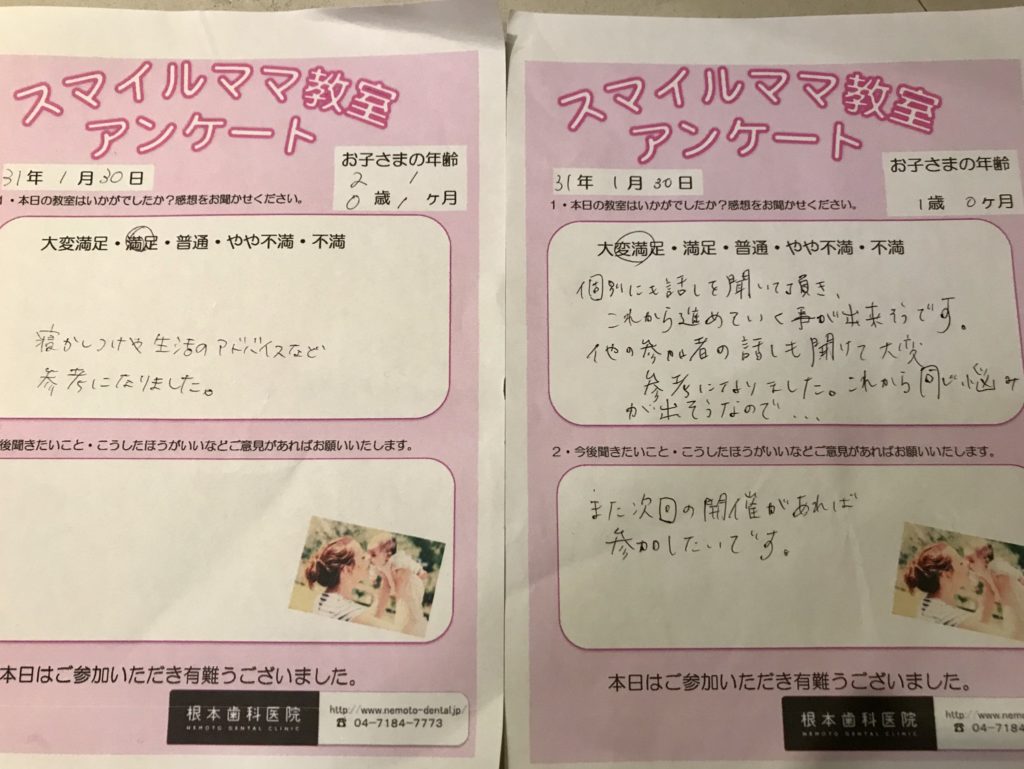 スマイルママ教室
アンケート
お子さまの年齢
31年 1月30日
2 1
0歳 1ヶ月
1・本日の教室はいかがでしたか?感想をお聞かせください。
大変満足・満足・普通・やや不満・不満
寝かしつけや生活のアドバイスなど
参考になりました。
後聞きたいこと・こうしたほうがいいなどご意見があればお願いいたします。
本日はご参加いただき有難うございました。
根本歯科医院
NEMOTO DENTAL CLINIC
http://www.nemoto-dental.jp/
☎ 04-7184-7773
スマイルママ教室
アンケート
お子さまの年齢
31年 1月30日
1歳 0ヶ月
1・本日の教室はいかがでしたか?感想をお聞かせください。
大変満足・満足・普通・やや不満・不満
個別にも話しを聞いて頂き、
これから進めていく事が出来そうです。
他の参加者の話しも聞けて大変
参考になりました。これから同じ悩み
が出そうなので...
2・今後聞きたいこと・こうしたほうがいいなどご意見があればお願いいたします。
また次回の開催があれば
参加したいです。
本日はご参加いただき有難うございました。
根本歯科医院
NEMOTO DENTAL CLINIC
http://www.nem
☎ 04-718